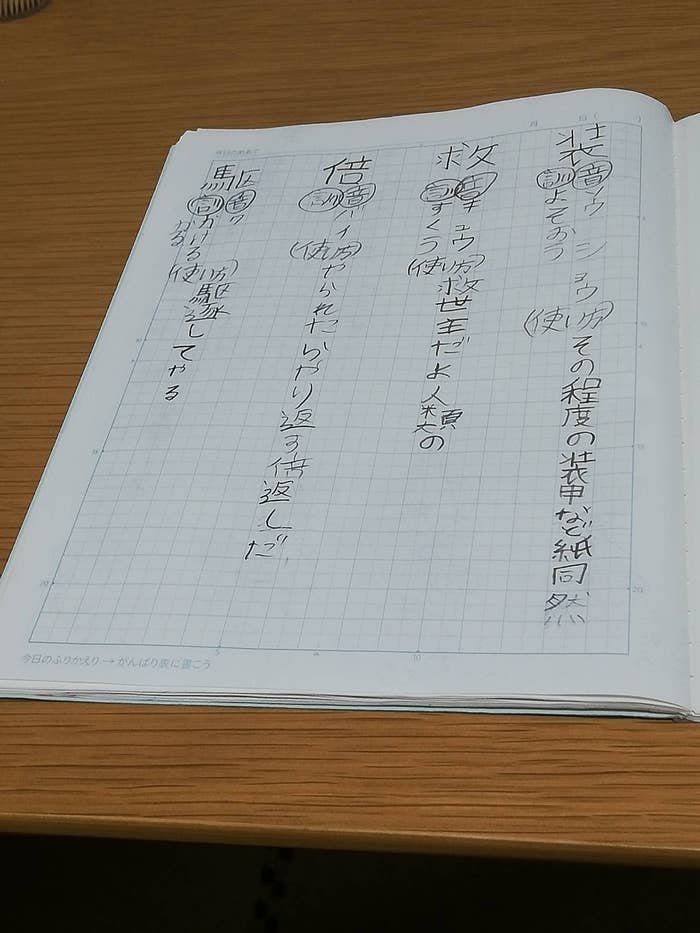 月 日( )
装
音 ソウ ショウ
訓 よそおう
(使い方)その程度の装甲など紙同然
救
音 キュウ
訓 すくう
(使い方)救世主だよ人類の
倍
音 バイ
訓
(使い方)やられたらやり返す倍返しだ
駆
音 ク
訓 かける
かる
(使い方)駆逐してやる
今日のめあて
5
10
15
20
5
10
今日のふりかえり→がんばり表に書こう